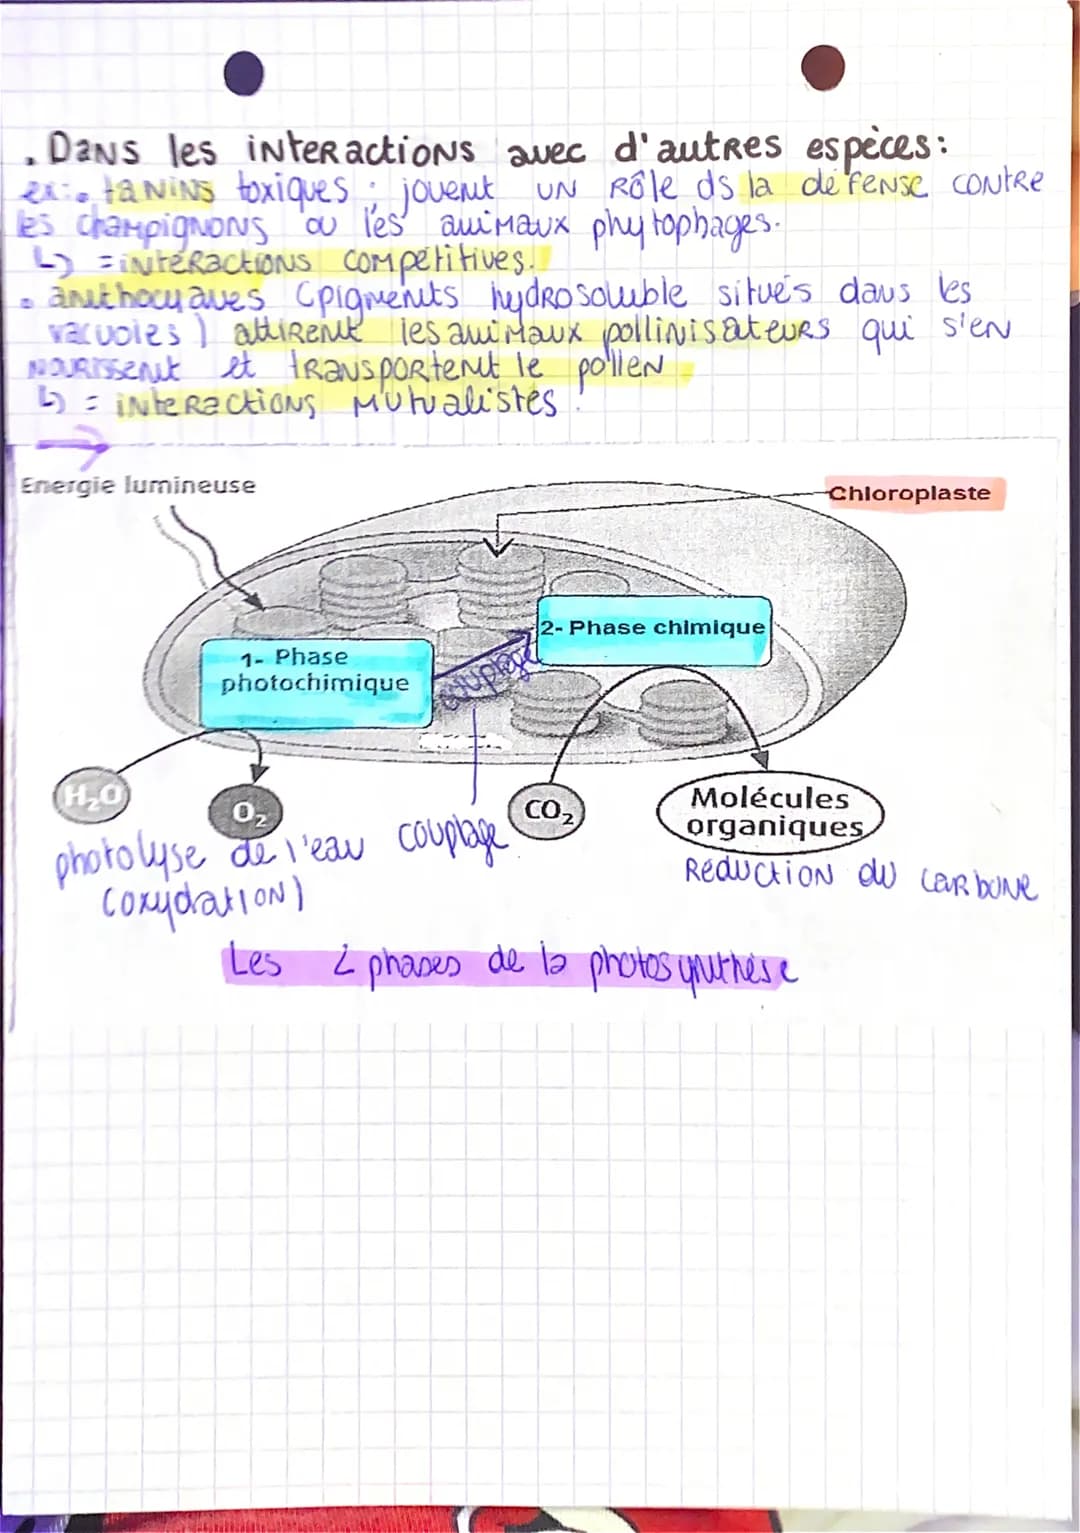 . Dans les interactions avec d'autres espèces:
ex: • tanins toxiques : jouent un rôle ds la défense contre
les champignons ou les animaux phytophages.
↳ = interactions compétitives.
• anthocyanes (pigments hydrosoluble situés dans les
vacuoles) attirent les animaux pollinisateurs qui s'en
nourrissent et transportent le pollen
↳ = interactions mutualistes !
Energie lumineuse
Chloroplaste
2- Phase chimique
1- Phase
photochimique
couplage
H₂O
O₂
CO₂
Molécules
organiques
photolyse de l'eau
(oxydation)
couplage
Réduction du carbone
Les 2 phases de la photosynthèse